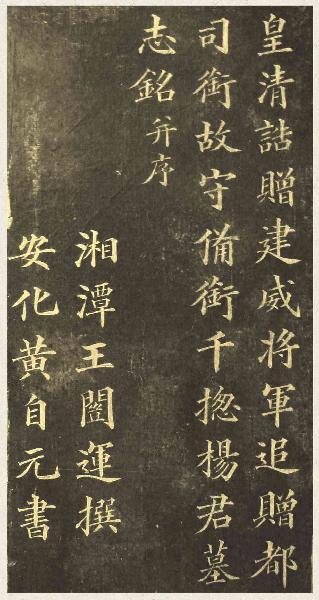 皇清誥贈建威将軍追贈都
司銜故守備銜千揔楊君墓
志銘并序
湘潭王闓運撰
安化黄自元書